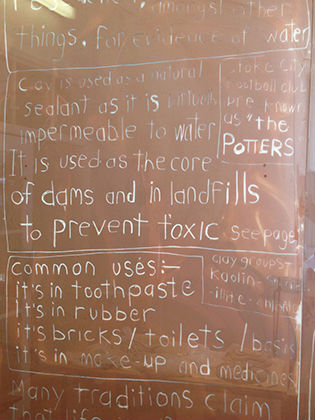 amongst other
things, for evidence of water
Clay is used as a natural
sealant as it is virtually
impermeable to water
It is used as the core
of dams and in landfills
to prevent toxic see page
Stoke City
football club
are known
as "the
POTTERS
Common uses:-
it's in toothpaste
It's in rubber
it's bricks/toilets/basis
it's in make-up and medicines
clay groups-
Kaolin-
-illite-
Many traditions claim
that life